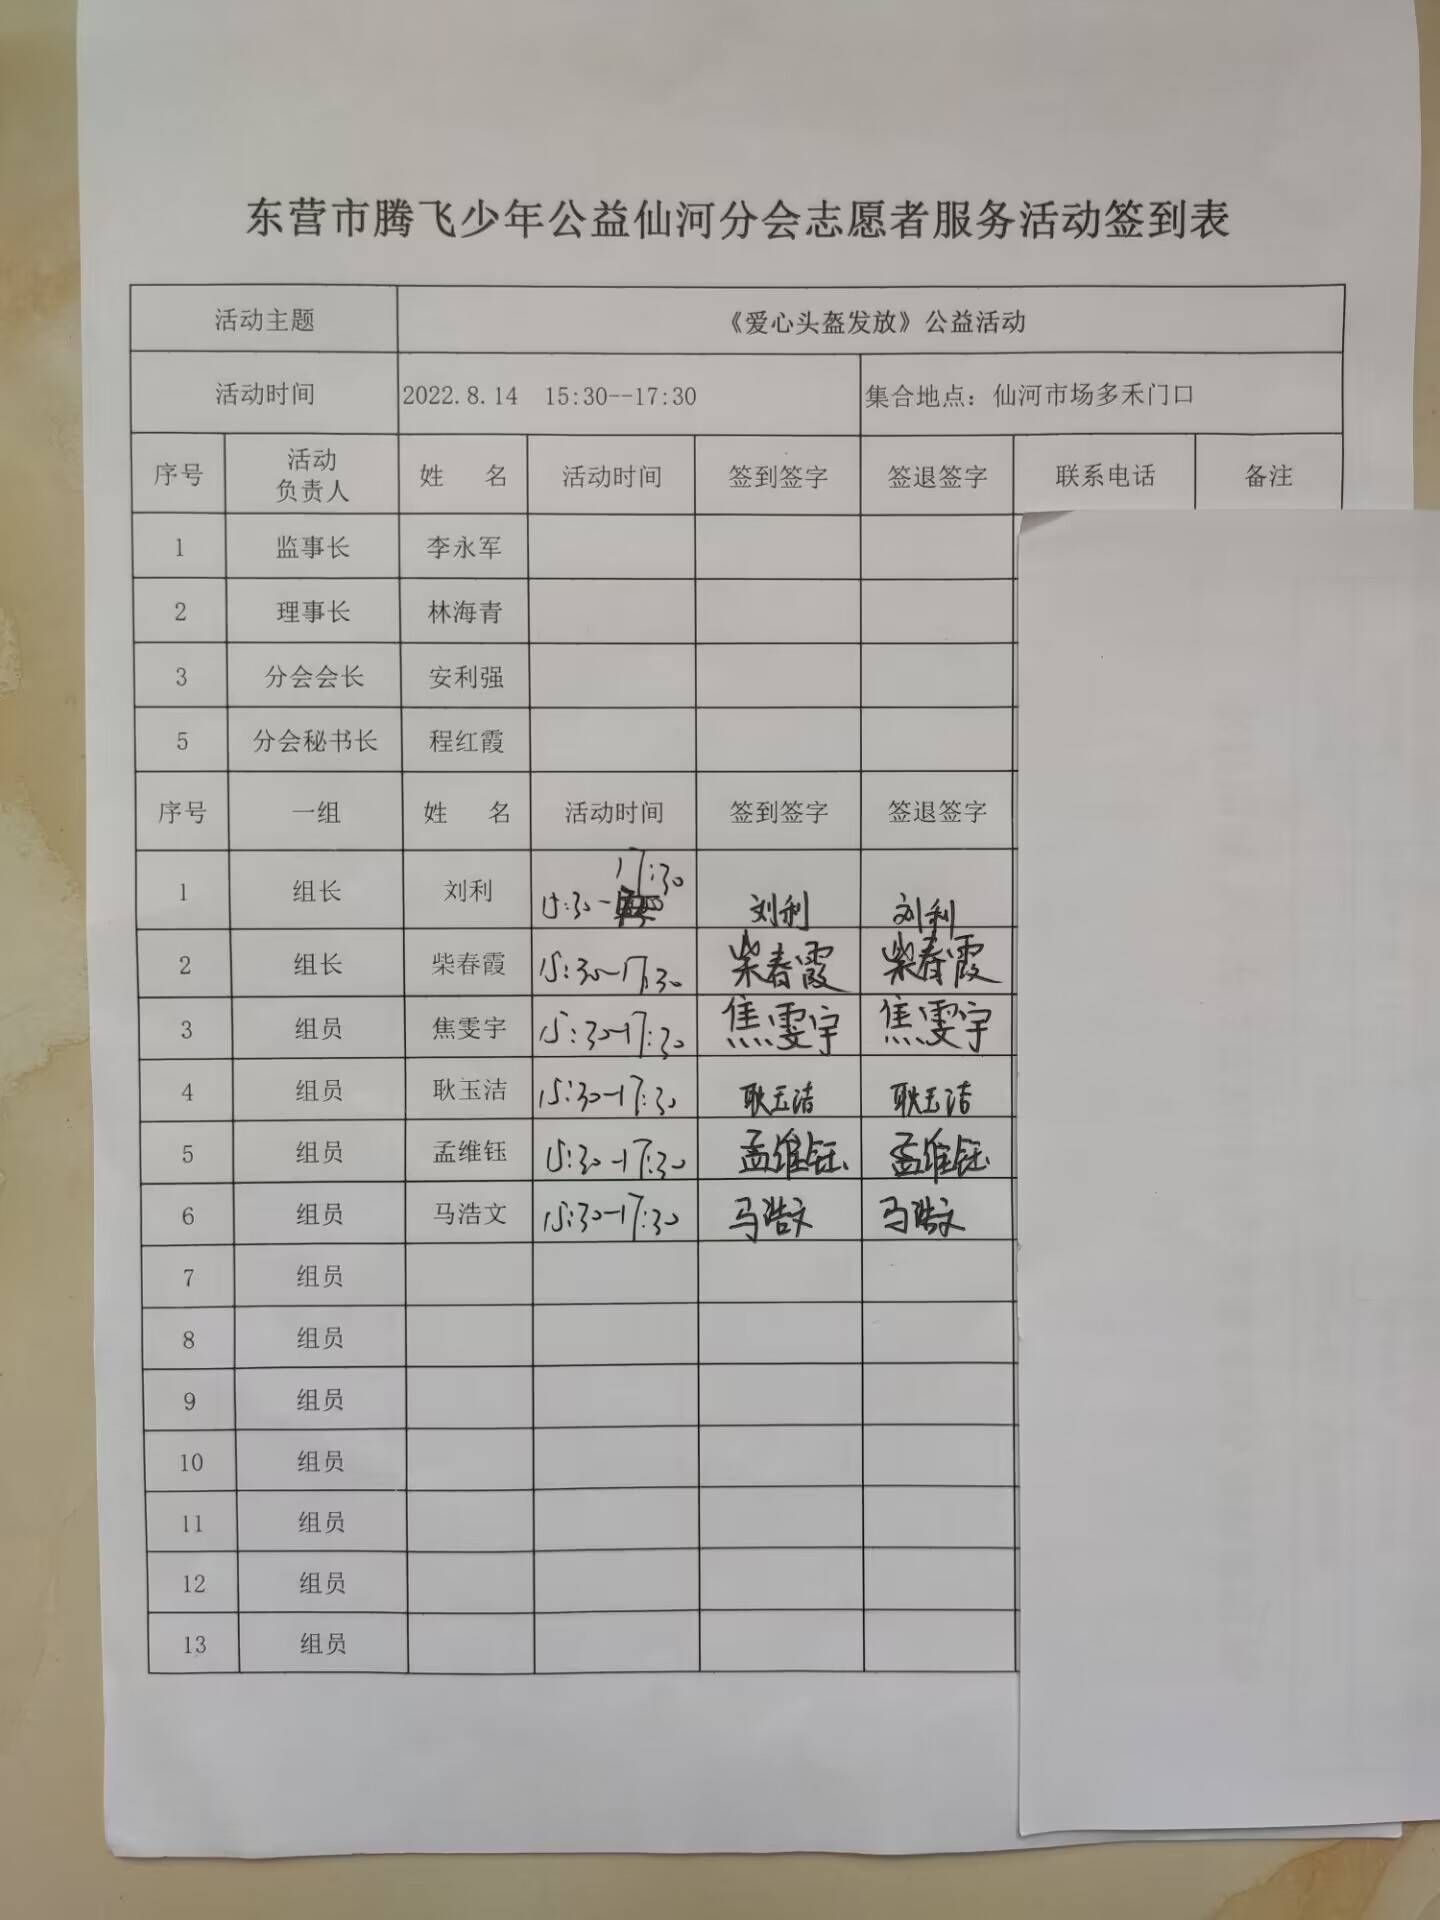 东营市腾飞少年公益仙河分会志愿者服务活动签到表
活动主题 《爱心头盔发放》公益活动
活动时间 2022.8.14 15:30--17:30 集合地点：仙河市场多禾门口
序号 活动负责人 姓 名 活动时间 签到签字 签退签字 联系电话 备注
1 监事长 李永军
2 理事长 林海青
3 分会会长 安利强
5 分会秘书长 程红霞
序号 一组 姓 名 活动时间 签到签字 签退签字
1 组长 刘利 15:30-17:30 刘利 刘利
2 组长 柴春霞 15:30-17:30 柴春霞 柴春霞
3 组员 焦雯宇 15:30-17:30 焦雯宇 焦雯宇
4 组员 耿玉洁 15:30-17:30 耿玉洁 耿玉洁
5 组员 孟维钰 15:30-17:30 孟维钰 孟维钰
6 组员 马浩文 15:30-17:30 马浩文 马浩文
7 组员
8 组员
9 组员
10 组员
11 组员
12 组员
13 组员